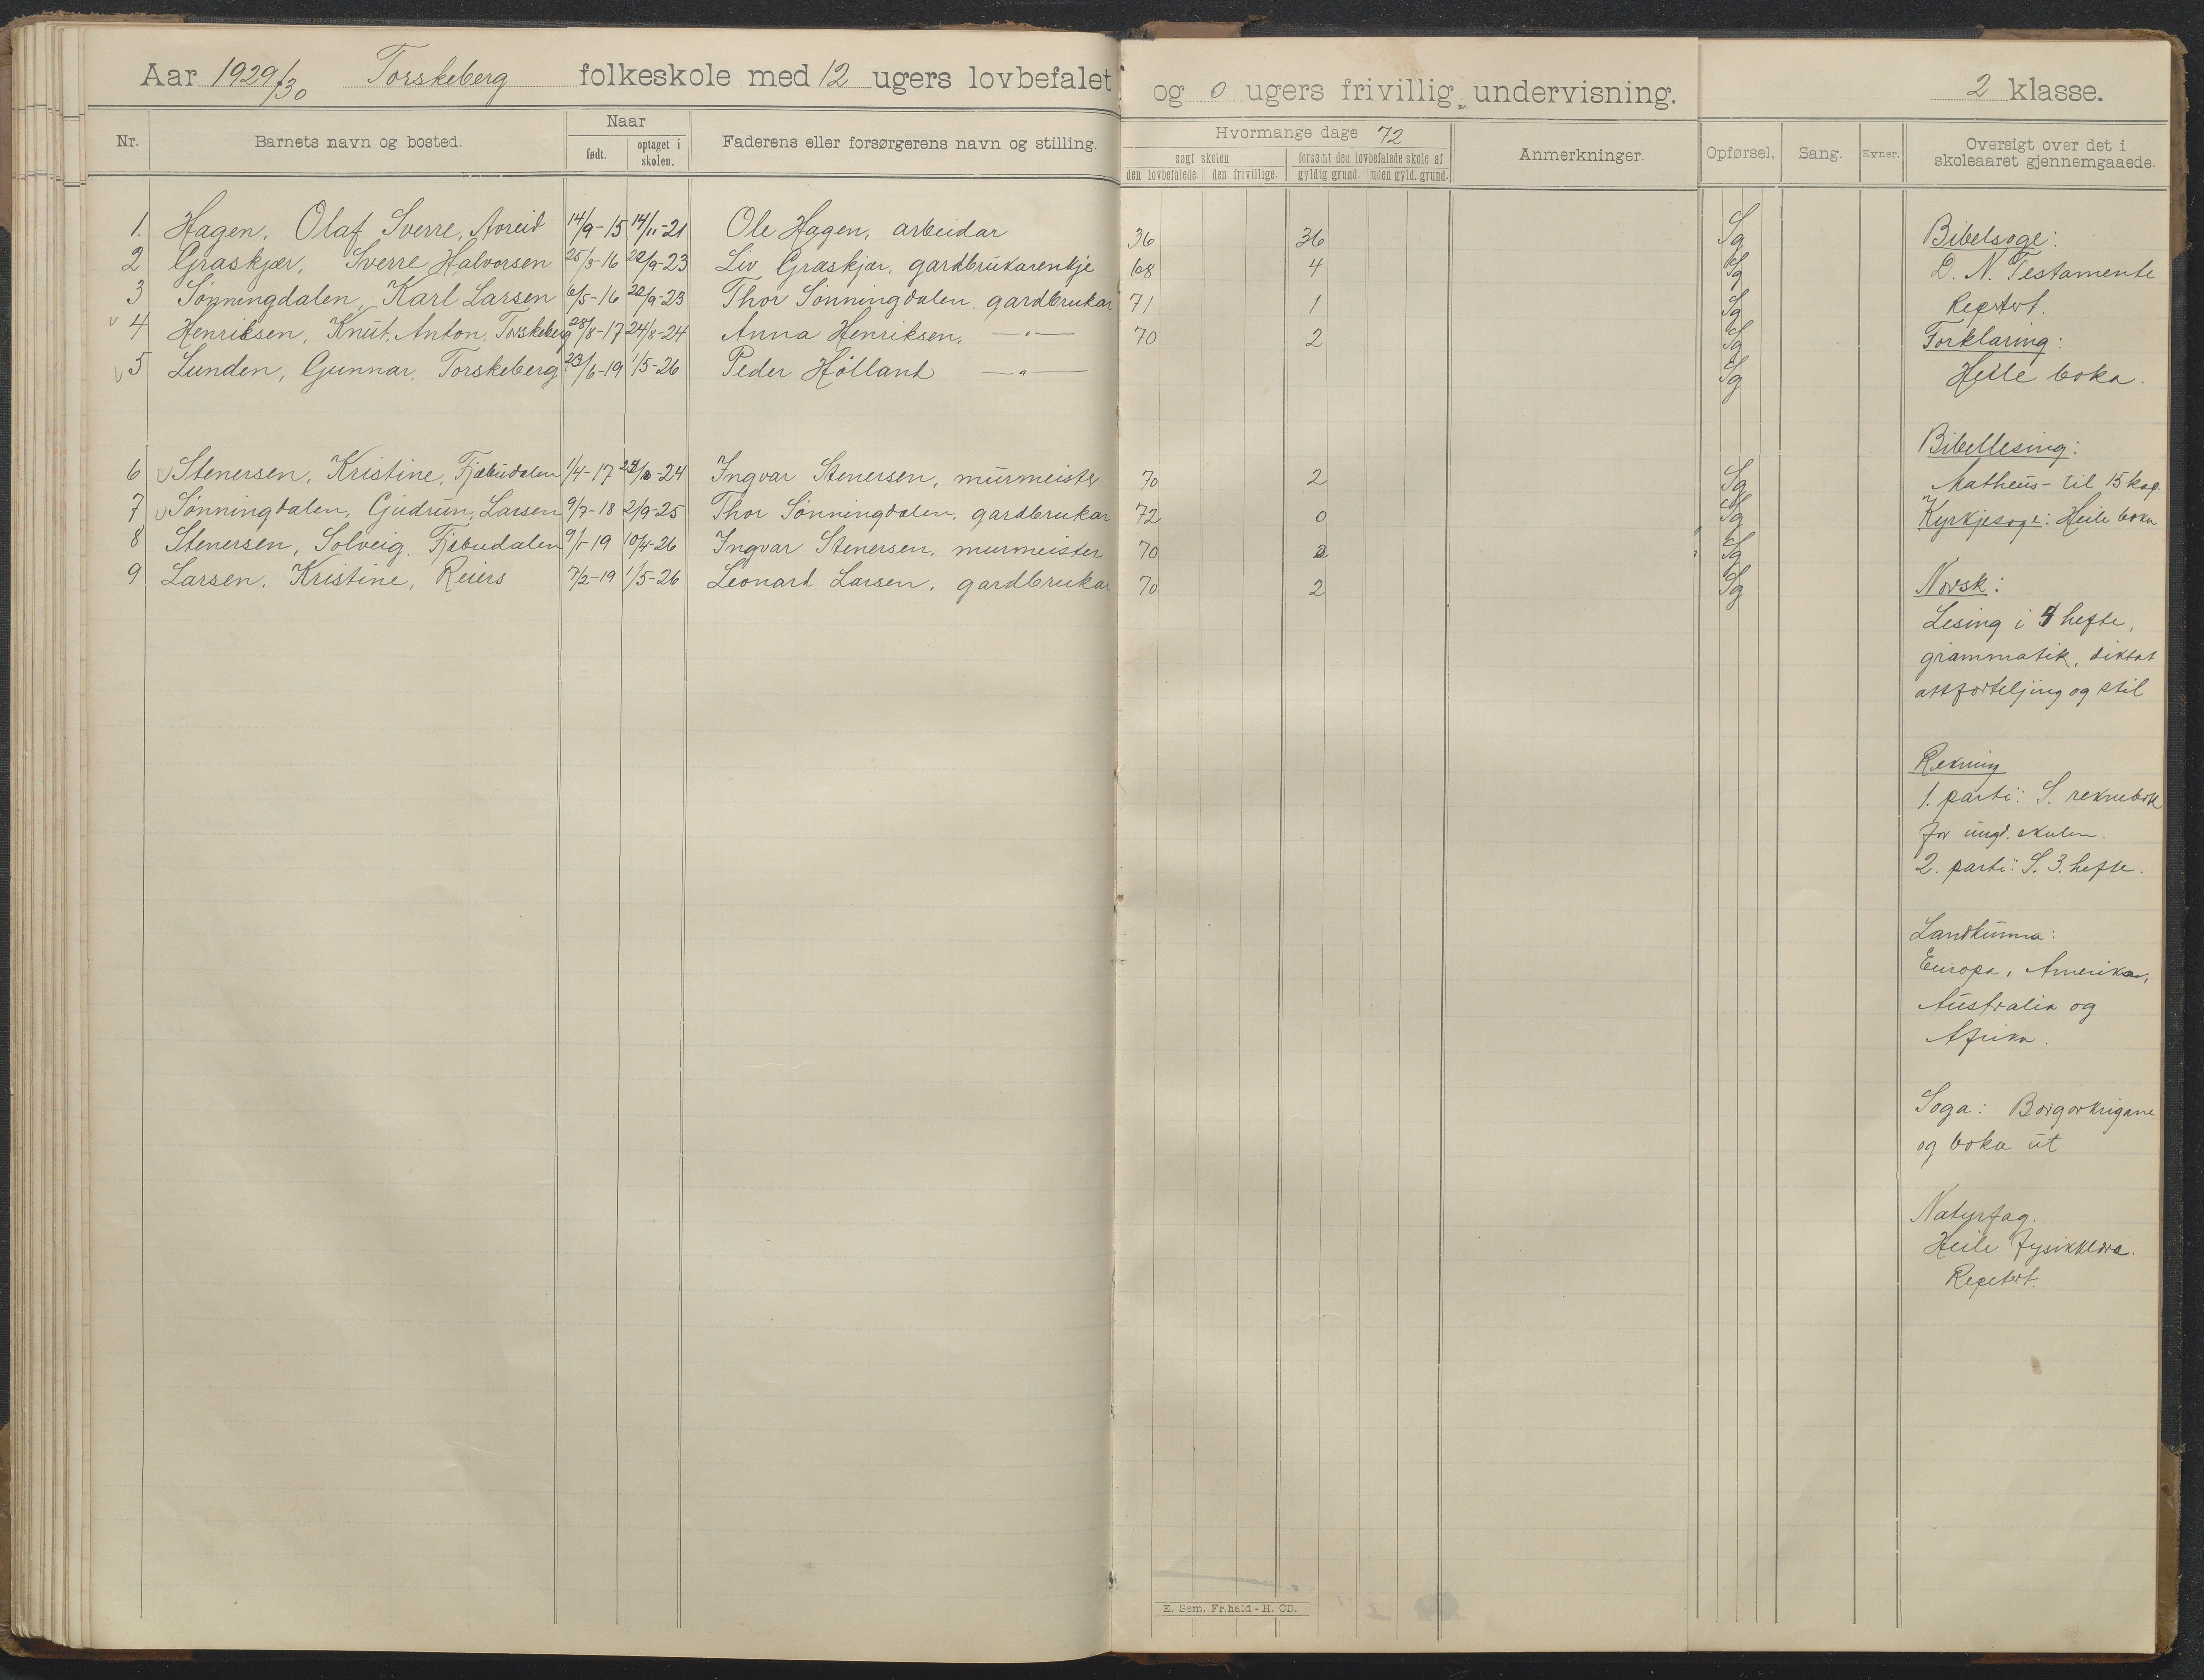 Aar 1929/30 Torskeberg folkeskole med 12 ugers lovbefalet og 0 ugers frivillig undervisning. 2 klasse.
Nr. Barnets navn og bosted. Naar født. optaget i skolen. Faderens eller forsørgerens navn og stilling.
Hvormange dage 72
søgt skolen den lovbefalede den frivillige. forsømt den lovbefalede skole af gyldig grund. uden gyld. grund.
Anmerkninger. Opførsel. Sang. Evner. Oversigt over det i skoleaaret gjennemgaaede.
1. Hagen, Olaf Sverre, Avreid 14/9-15 14/11-21 Ole Hagen, arbeidar 36 36 Sg
2 Graskjær, Sverre Halvorsen 25/3-16 22/9-23 Liv Graskjær, gardbrukarenkje 68 4 Sg
3 Sønningdalen, Karl Larsen 6/5-16 22/9-23 Thor Sønningdalen, gardbrukar 71 1 Sg
4 Henriksen, Knut, Anton, Torskeberg 28/8-17 24/8-24 Anna Henriksen, —"— 70 2 Sg
5 Lunden, Gunnar, Torskeberg 23/6-19 1/5-26 Peder Hølland —"— Sg
6 Stenersen, Kristine, Fjæbudalen 1/4-17 -24 Ingvar Stenersen, murmeister 70 2 Sg
7 Sønningdalen, Gudrun, Larsen 9/7-18 21/9-25 Thor Sønningdalen, gardbrukar 72 0 Sg
8 Stenersen, Solveig, Fjæbudalen 9/1-19 10/4-26 Ingvar Stenersen, murmeister 70 2 Sg
9 Larsen, Kristine, Reiers 7/2-19 1/5-26 Leonard Larsen, gardbrukar 70 2 Sg
Bibelsoge:
D. N. Testamente
Repetert.
Forklaring:
Heile boka.
Bibellesing:
Matheus- til 15 kap.
Kyrkjesoge: Heile boka
Norsk:
Lesing i 4 hefte,
grammatik, diktat
attforteljing og stil
Rekning
1. parti: S. reknebok
for ungd. skulen.
2. parti: S. 3. hefte.
Landkunna:
Europa, Amerika,
Australia og
Afrika.
Soga: Borgarkrigane
og boka ut
Naturfag.
Heile fysikklæra.
Repetert.
E. Sem, Fr.hald - H. CD.